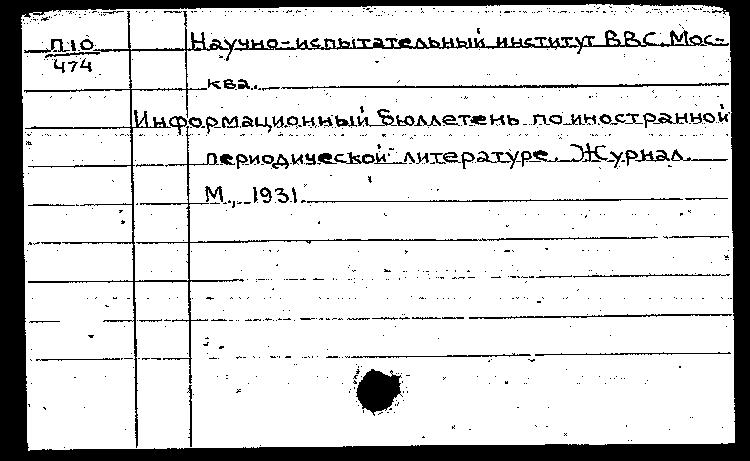 П10
474
Научно-испытательный институт ВВС. Мос-
ква.
Информационный бюллетень по иностранной
периодической литературе. Журнал.
М., 1931.